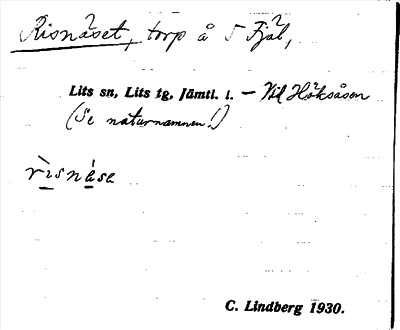 Risnäset, torp å S Fjäl,
Lits sn, Lits tg, Jämtl. l. – Vid Höksåsen
(Se naturnamnen!)
rìsnása
C. Lindberg 1930.